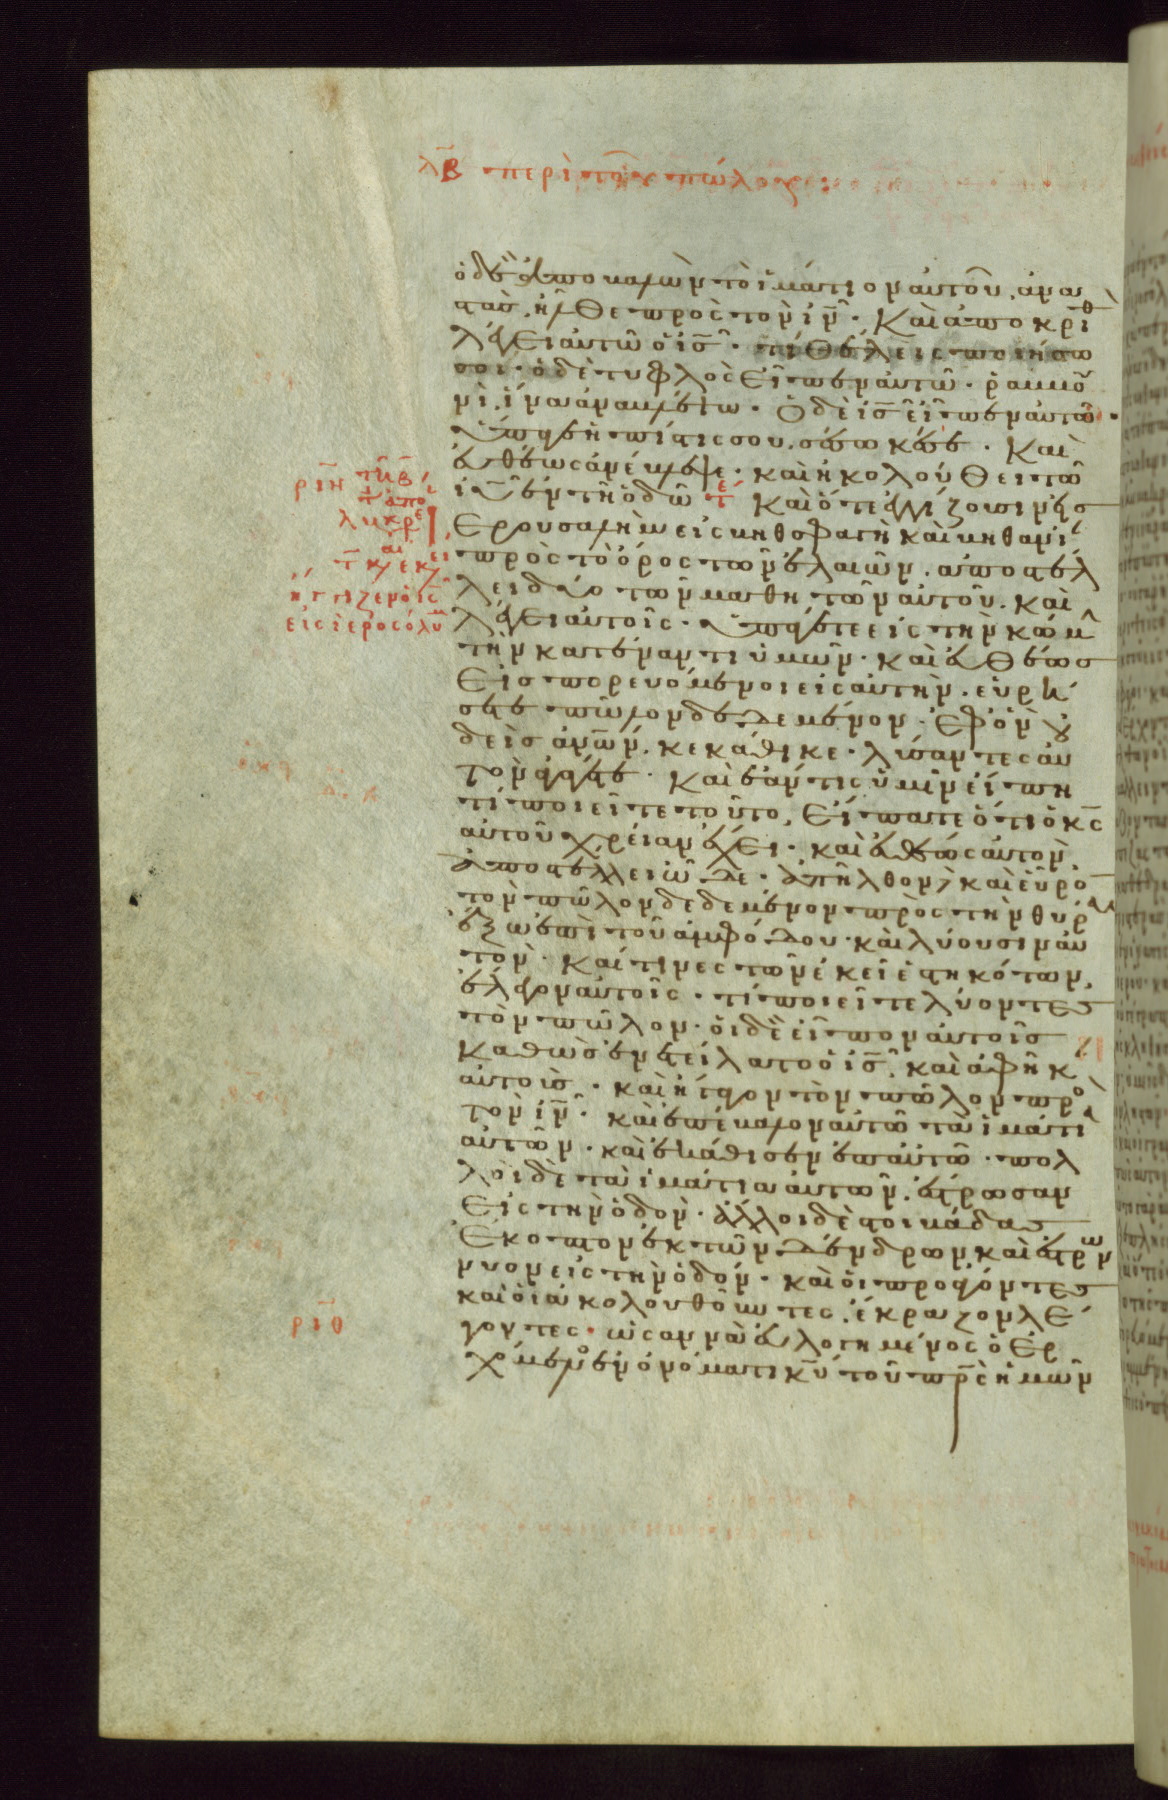 λβ περὶ τοῦ πώλου:
ὁ δὲ ἀποβαλὼν τὸ ἱμάτιον αὐτοῦ. ἀνα
στὰσ. ἦλθε πρὸς τὸν ιν̅. Καὶ ἀποκριθ
λέγει αὐτῶ ὁ ις̅. τί θέλεις ποιήσω
σοι. ὁ δὲ τυφλὸς εἶπεν αὐτῶ. ραββου
νὶ. ἵνα ἀναβλέψω. Ὁ δὲ ις̅ εἶπεν αὐτῶ.
ὕπαγε ἡ πίστις σου. σέσωκέ σε. Καὶ
εὐθέως ἀνέβλεψε. καὶ ἠκολούθει τῶ
ιυ̅ ἐν τῆ ὁδῶ Καὶ ὅτε ἐγγίζουσιν εἰσ
ιερουσαλὴμ εἰς βηθσφαγὴ καὶ βηθανί
πρὸς τὸ ὄρος τῶν ἐλαιῶν. ἀποστέλ
λει δύο τῶν μαθητῶν αὐτοῦ. καὶ
λέγει αὐτοῖς. ὑπάγετε εἰς τὴν κώμ
τὴν κατέναντι ὑμῶν. καὶ εὐθέωσ
εἰσπορευόμενοι εἰς αὐτὴν. εὑρή
σετε πῶλον δεδεμένον. ἐφ ὃν οὐ
δεὶσ ἀνων̅. κεκάθικε. λύσαντες αὐ
τὸν ἀγάγετε. Καὶ ἐάν τις ὑμῖν εἴπη
τί ποιεῖτε τοῦτο, εἴπατε ὅτι ὁ κς̅
αὐτοῦ χρείαν ἔχει. καὶ εὐθέως αὐτὸν
ἀποστέλλει ὧδε. ἀπῆλθον καὶ εὗρο
τὸν πῶλον δεδεμένον πρὸς τὴν θύρα
ἔξω ἐπὶ τοῦ ἀμφόδου. καὶ λύουσιν αὐ
τὸν. Καί τινες τῶν ἐκεῖ ἑστηκότων
ἔλεγον αὐτοῖς. τί ποιεῖτε λύοντεσ
τὸν πῶλον. οἱ δὲ εἶπον αὐτοῖσ
καθὼσ ἐνετείλατο ὁ ις̅. καὶ ἀφῆκ
αὐτοὺσ. καὶ ἤγαγον τὸν πῶλον προ
τὸν ιν̅. καὶ ἐπέβαλον αὐτῶ τὰ ἱμάτια
αὐτῶν. καὶ ἐκάθισεν ἐπ αὐτῶ. πολ
λοὶ δὲ τὰ ἱμάτια αὐτῶν. ἔστρωσαν
εἰς τὴν ὁδὸν. ἄλλοι δὲ στοιβάδασ
ἔκοπτον ἐκ τῶν δένδρων, καὶ ἐστρών
νυον εἰς τὴν ὁδόν. καὶ οἱ προάγοντεσ
καὶ οἱ ἀκολουθοῦντες. ἔκραζον λέ
γοντες. ὡσαννὰ εὐλογημένος ὁ ἐρ
χόμενος ἐν ὀνόματι κυ̅ τοῦ πρς̅ ἡμῶν
ριη
ριθ
εἰς ἱεροσόλυμ